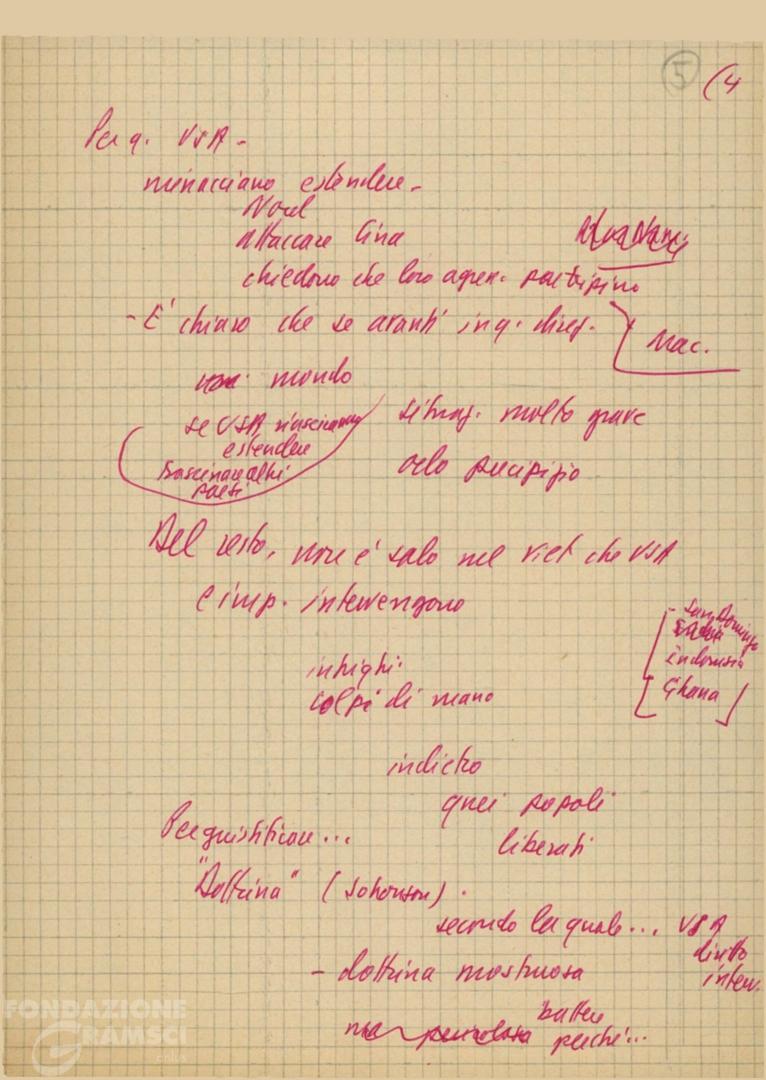 5 (4
Per q. USA -
minacciano estendere -
Nord
attaccare Cina
chiedono che loro agen. partipino
- E' chiaro che se avanti in q. direz.
Mac.
mondo
se USA riusciranno
estendere
trascinare altri
paesi
situaz. molto grave
orlo precipizio
Del resto, non è solo nel Viet che USA
e imp. intervengono
- San Domingo
indonesia
Ghana
intrighi.
colpi di mano
indietro
quei popoli
liberati
Per giustificare...
"Dottrina" (Johonson).
secondo la quale... USA
diritto
interv.
- dottrina mostruosa
ma pericolosa battere
perché...
FONDAZIONE
GRAMSCI